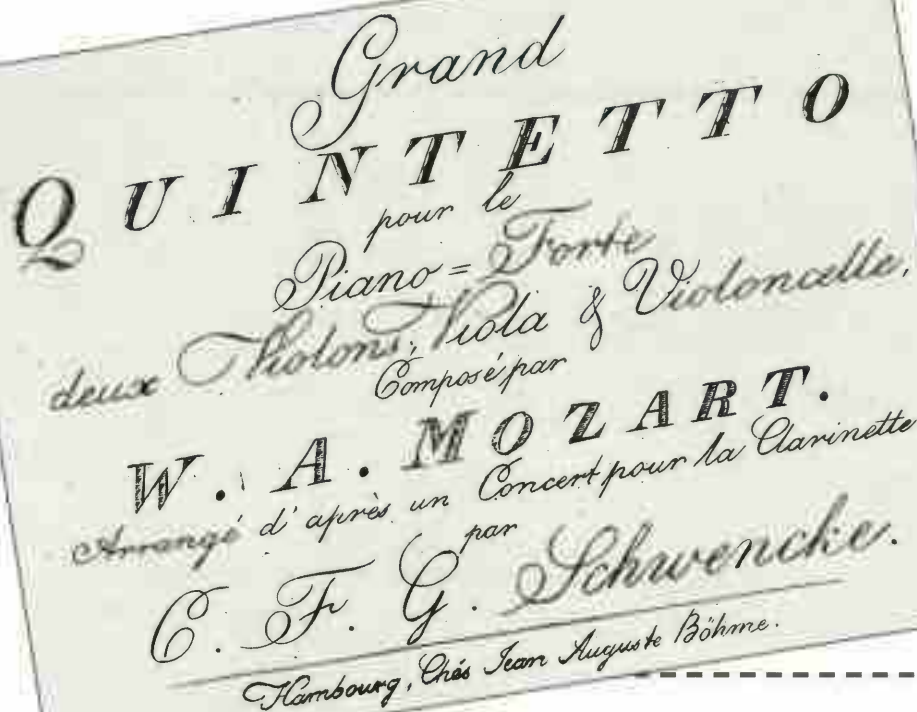 Grand
QUINTETTO
pour le
Piano = Forte
deux Violons, Viola & Violoncelle,
Composé par
W. A. MOZART.
Arrangé d'après un Concert pour la Clarinette
par
C. F. G. Schwencke.
Hambourg, Chés Jean Auguste Böhme.